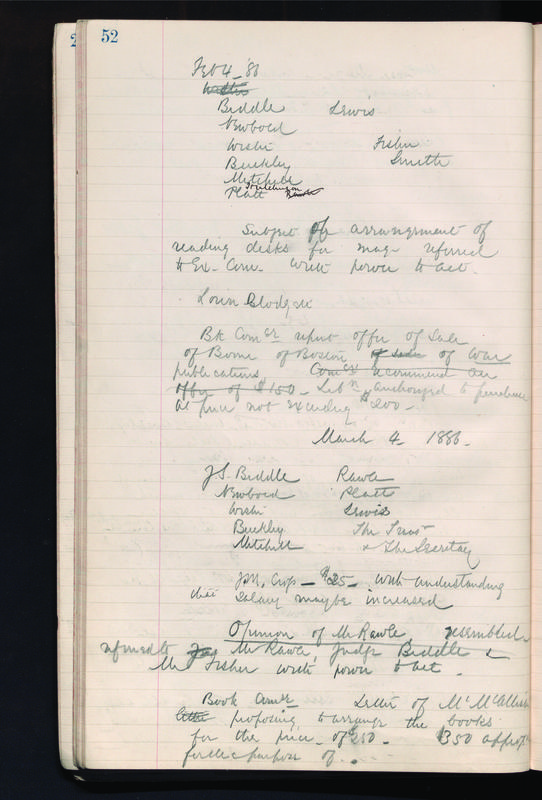 2 52
Feb 4 - '86
Biddle Lewis
Newbold
Wistar Fisher
Buckley Smith
Mitchell
Platt Hutchinson
Subject of arrangement of
reading desks for mags referred
to Ex. Com. with power to act.
Lorin Blodget
Bk Comee report offer of Sale
of Boone of Boston of war
publications. Comee recommend an
offer of $150 - Libn authorized to purchase
at price not exceeding $200 -
March 4. 1886.
J S. Biddle Rawle
Newbold Platt
Wistar Lewis
Buckley The Treas
Mitchell & The Secretary
J M. - $25 - with understanding
that salary may be increased
Opinion of Mr Rawle resembled
referred to Mr Rawle, Judge Biddle &
Mr Fisher with power to act.
Book Comee Letter of Mr McAllister
proposing to arrange the books
for the price of $50 - $50 approp
for the purpose of.